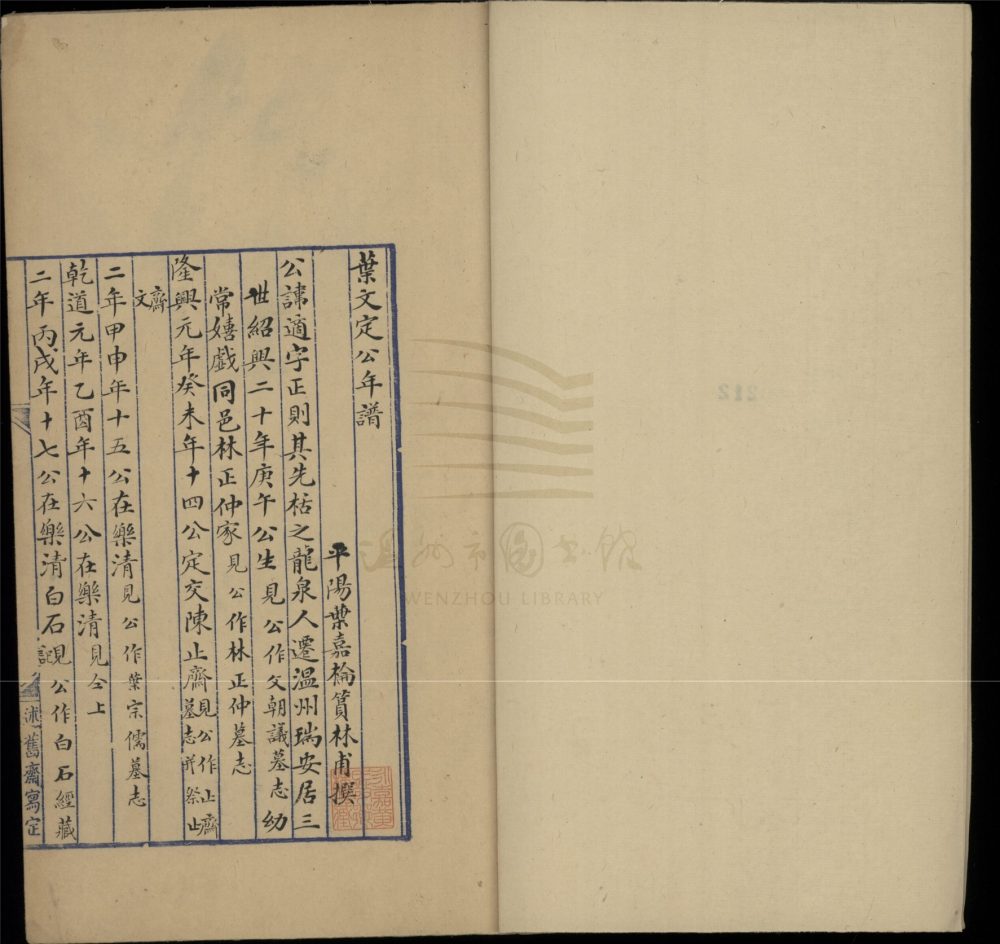 葉文定公年譜
平陽葉嘉棆篔林甫撰
公諱適字正則其先栝之龍泉人遷温州瑞安居三
世紹興二十年庚午公生見公作父朝議墓志幼
常嬉戲同邑林正仲家見公作林正仲墓志
隆興元年癸未年十四公定交陳止齋見公作止齋墓志并祭止
齋文
二年甲申年十五公在樂清見公作葉宗儒墓志
乾道元年乙酉年十六公在樂清見仝上
二年丙戌年十七公在樂清白石見公作白石經藏記
述舊齋寫定
212
温州市图书馆
WENZHOU LIBRARY